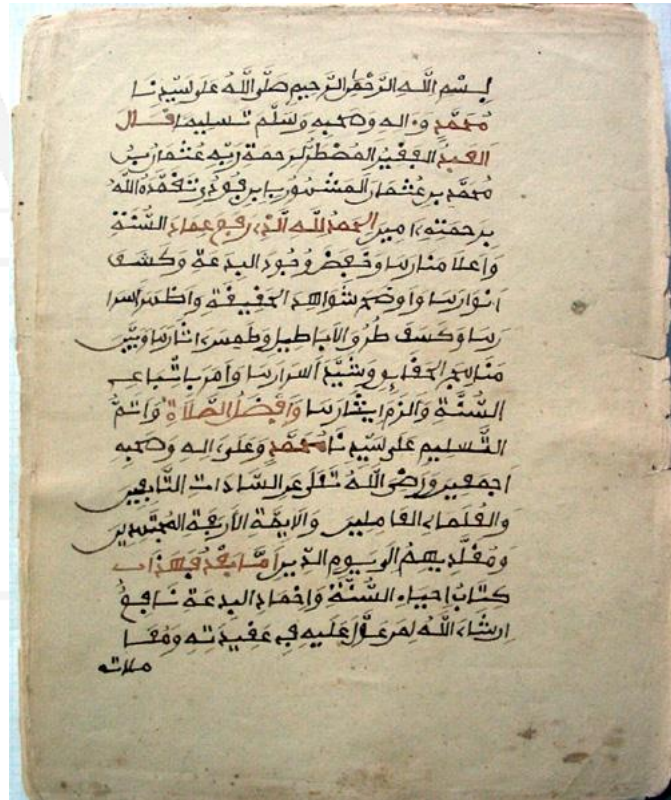 بِسْمِ اللَّهِ الرَّحْمَٰنِ الرَّحِيمِ صَلَّى اللَّهُ عَلَى سَيِّدِنَا
مُحَمَّدٍ وءاله وصحبه وَسَلَّمَ تَسْلِيما قَالَ
العَبْدُ الفَقِيرُ المُضْطَرُّ لرحمة رَبِّهِ عُثْمَان بْنُ
مُحَمَّد بن عُثْمَان المَشْهُور بابن فُودِي تَغَمَّدَهُ اللَّهُ
بِرَحْمَتِهِ ءامين الحَمْدُ لِلَّهِ الَّذِي رفع عِمَادَ السُّنَّة
وأعلا منارها وخَفَضَ وُجُودَ البِدْعَة وكَشَفَ
أنوارها وأوضح شواهد الحَقِيقَة وأظهر أسرا
رها وكسف طُرُقَ الأباطيل وطمس ءاثارها وبَيَّنَ
مناهج الحقايق وشَيَّدَ أسرارها وأمر باتِّباع
السُّنَّة وألزم إيثارها وأَفْضَلُ الصَّلَاةِ وأتمُّ
التَّسليم على سَيِّدِنَا مُحَمَّدٍ وعلى ءاله وصحبه
أجمعين ورضي اللَّهُ تعلى عن السَّادَاتِ التَّابعين
والعُلَمَاءِ العاملين والأيمّة الأربعة المجتهدين
ومُقَلِّدِيهِمُ إلى يوم الدِّين أمَّا بَعْدُ فهذا
كِتَابُ إحياء السُّنَّة وإخماد البدعة نافعٌ
إن شاء اللَّهُ لمن عَوَّلَ عليه في عقيدته ومُعَا
ملاته